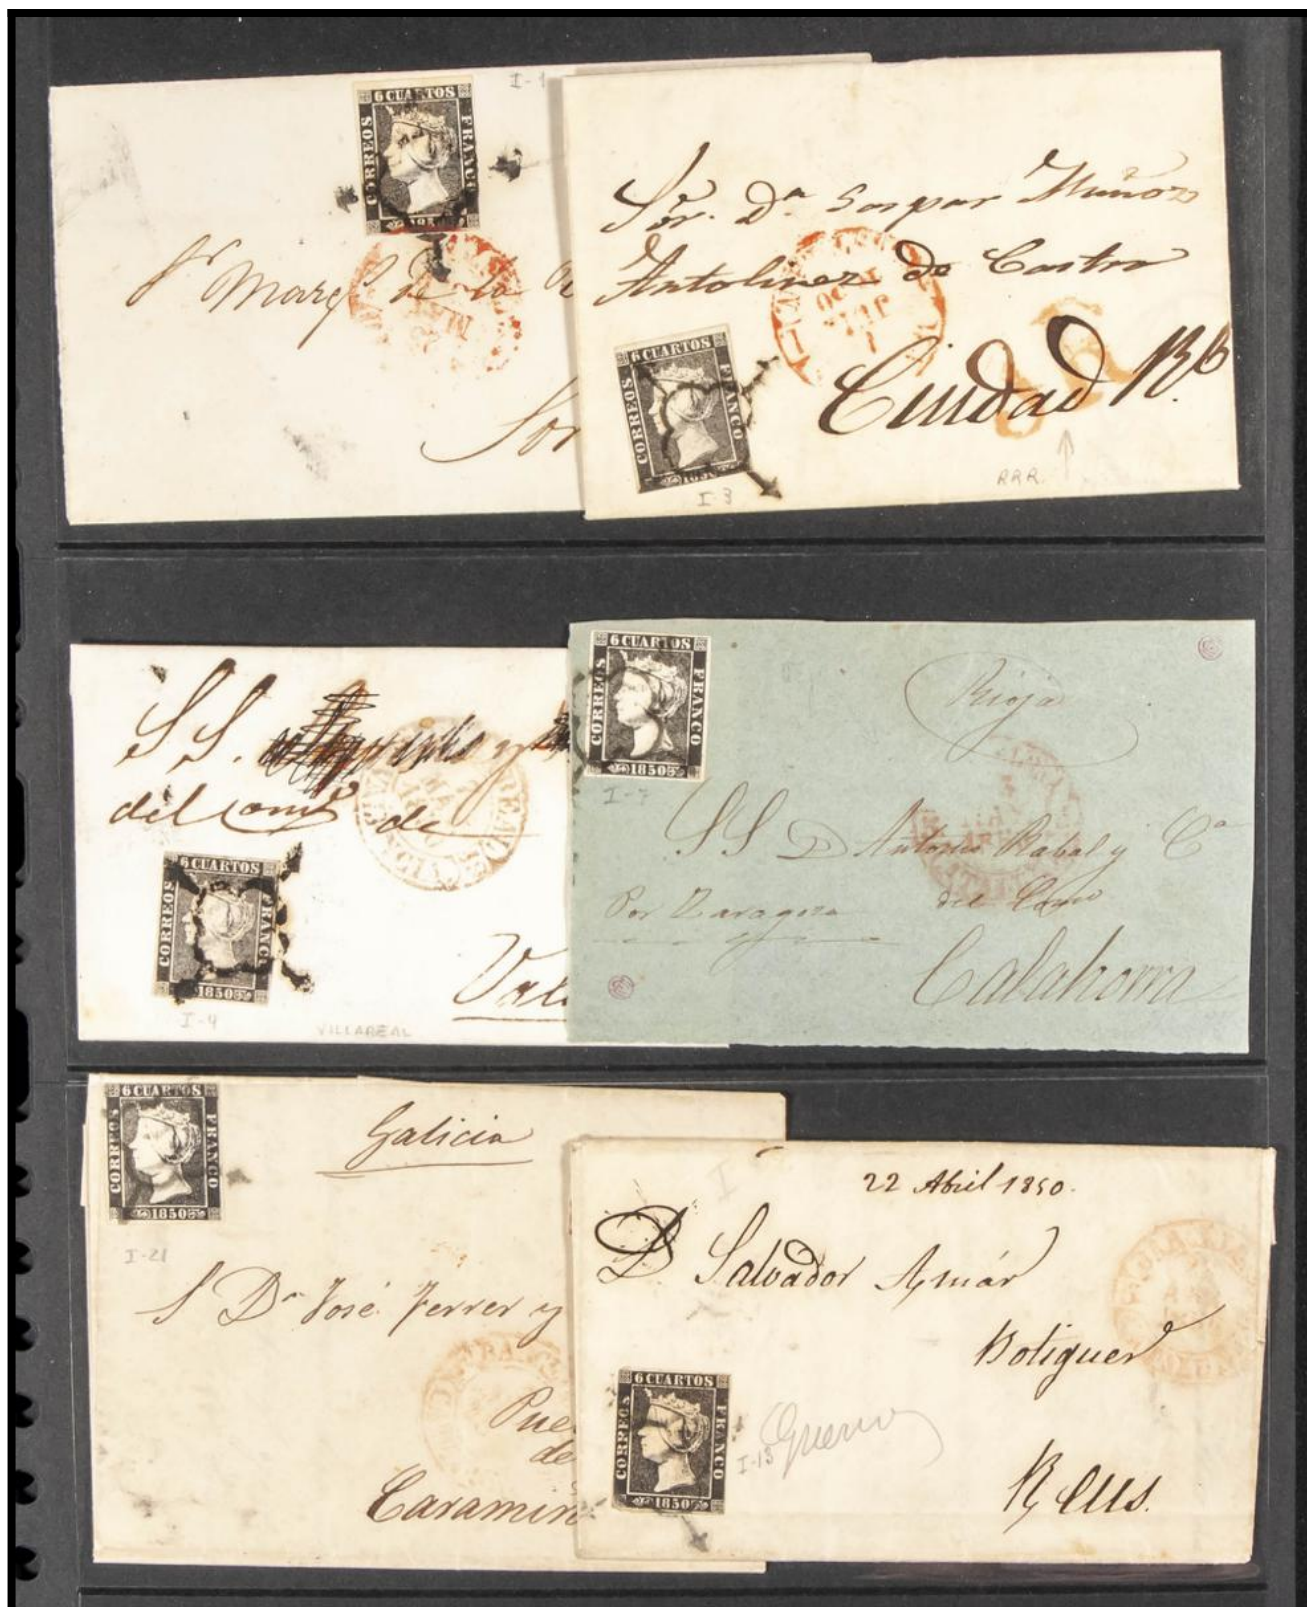 6 CUARTOS
CORREOS
FRANCO
I-1
Sr Marqs de la
Sor
Sor. Dn Gaspar Muñoz
Antolinez de Castro
Ciudad Rl
6 CUARTOS
CORREOS
FRANCO
I-3
RRR.
S S.
del Comº de
6 CUARTOS
CORREOS
FRANCO
1850
Val
I-4
VILLAREAL
6 CUARTOS
CORREOS
FRANCO
1850
I-7
Rioja
S S D Antonio Rabal y Ca
Por Zaragoza
del Comº
Calahorra
6 CUARTOS
CORREOS
FRANCO
1850
I-21
Galicia
S Dn José Ferrer y
Pue
de
Caramiñ
22 Abril 1850.
D Salvador Aymár
Botiguer
Reus.
6 CUARTOS
CORREOS
FRANCO
1850
I-13